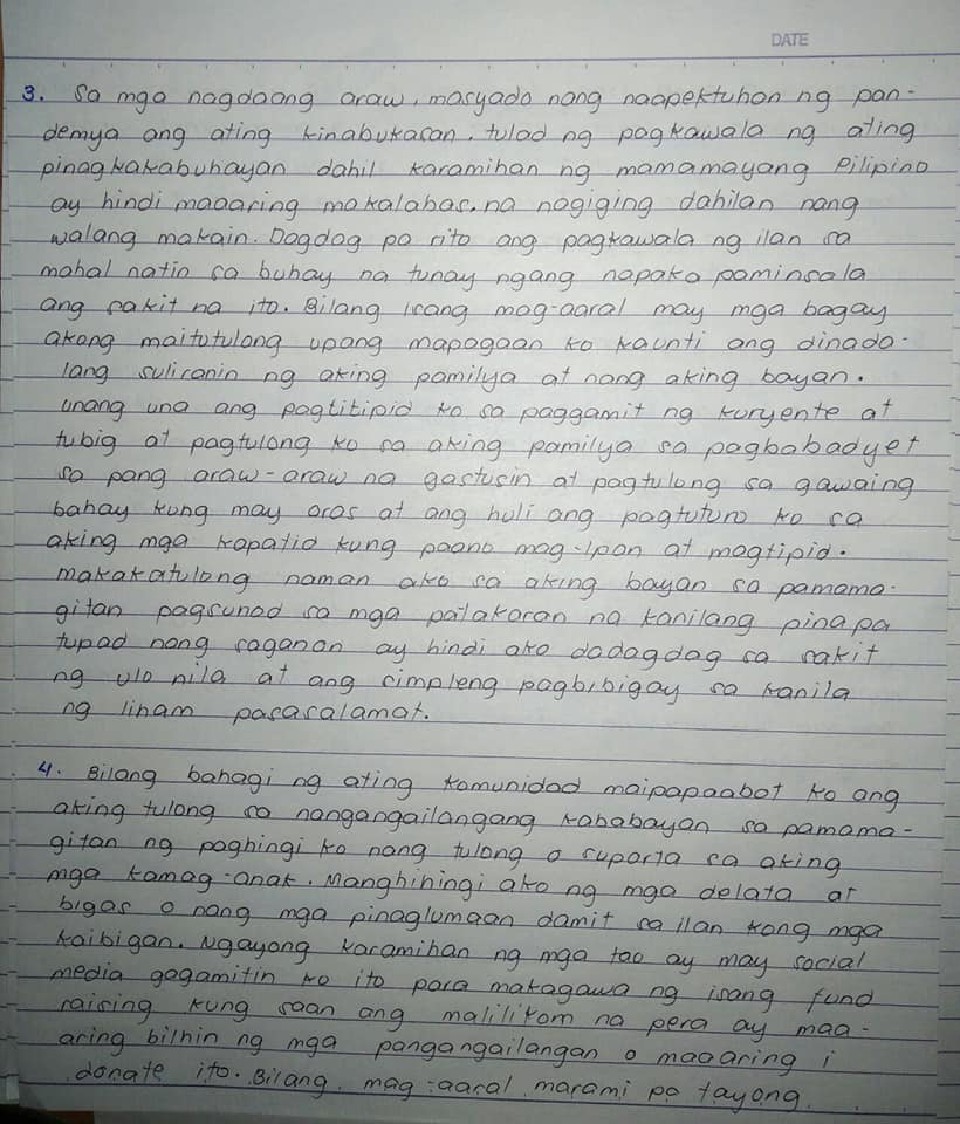 DATE
3. Sa mga nagdaang araw, masyado nang naapektuhan ng pan-
demya ang ating kinabukasan. tulad ng pagkawala ng ating
pinagkakabuhayan dahil karamihan ng mamamayang Pilipino
ay hindi maaaring makalabas, na nagiging dahilan nang
walang makain. Dagdag pa rito ang pagkawala ng ilan sa
mahal natin sa buhay na tunay ngang napaka paminsala
ang sakit na ito. Bilang Isang mag-aaral may mga bagay
akong maitutulong upang mapagaan ko kaunti ang dinada-
lang suliranin ng aking pamilya at nang aking bayan.
unang una ang pagtitipid ko sa paggamit ng kuryente at
tubig at pagtulong ko sa aking pamilya sa pagbabadyet
sa pang araw-araw na gastusin at pagtulong sa gawaing
bahay kung may oras at ang huli ang pagtuturo ko sa
aking mga kapatid kung paano mag-Ipon at magtipid.
makakatulong naman ako sa aking bayan sa pamama-
gitan pagsunod sa mga palakaran na kanilang pinapa
tupad nang saganon ay hindi ako dadagdag sa sakit
ng ulo nila at ang simpleng pagbibigay sa kanila
ng liham pasasalamat.
4. Bilang bahagi ng ating komunidad maipapaabot ko ang
aking tulong sa nangangailangang kababayan sa pamama-
gitan ng paghingi ko nang tulong o suporta sa aking
mga kamag-anak. Manghihingi ako ng mga delata at
bigas o nang mga pinaglumaan damit sa ilan kong mga
kaibigan. Ngayong karamihan ng mga tao ay may social
media gagamitin ko ito para makagawa ng isang fund
raising kung saan ang malilikom na pera ay maa-
aring bilhin ng mga pangangailangan o maaaring i
donate ito. Bilang mag-aaral marami pa tayong